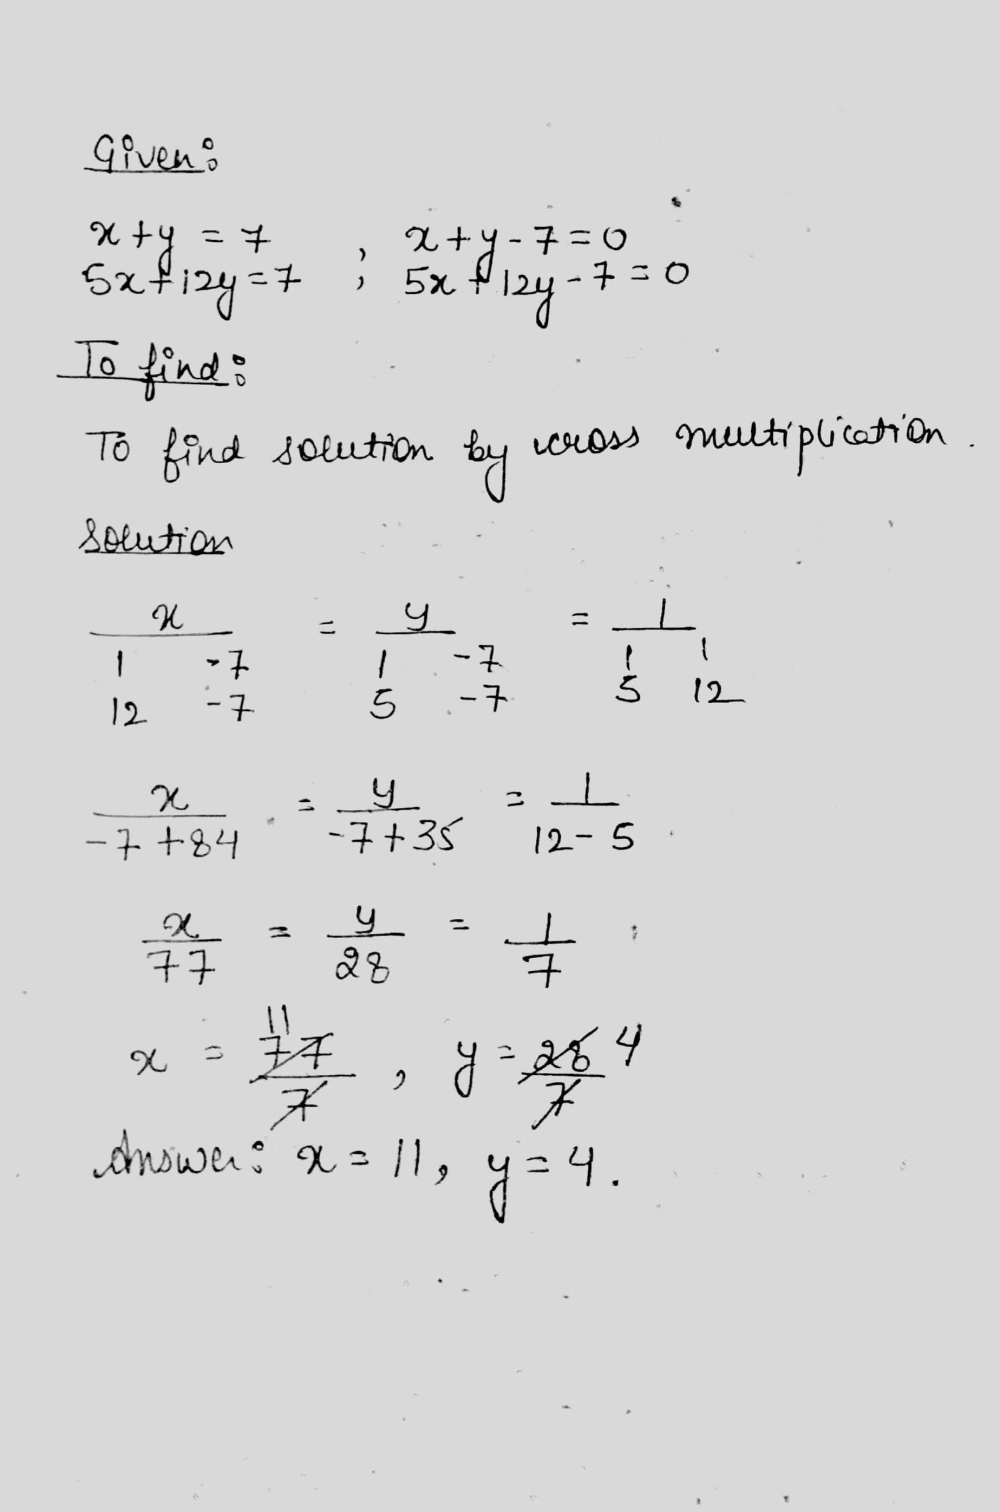 Given:
x+y = 7 , x+y-7=0
5x+12y=7 ; 5x+12y-7=0
To find:
To find solution by cross multiplication.
Solution
x = y = 1
1 -7 1 -7 1 1
12 -7 5 -7 5 12
x = y = 1
-7+84 -7+35 12-5
x = y = 1
77 28 7
11
x = 77 , y = 28 4
7 7
Answer: x = 11, y = 4.